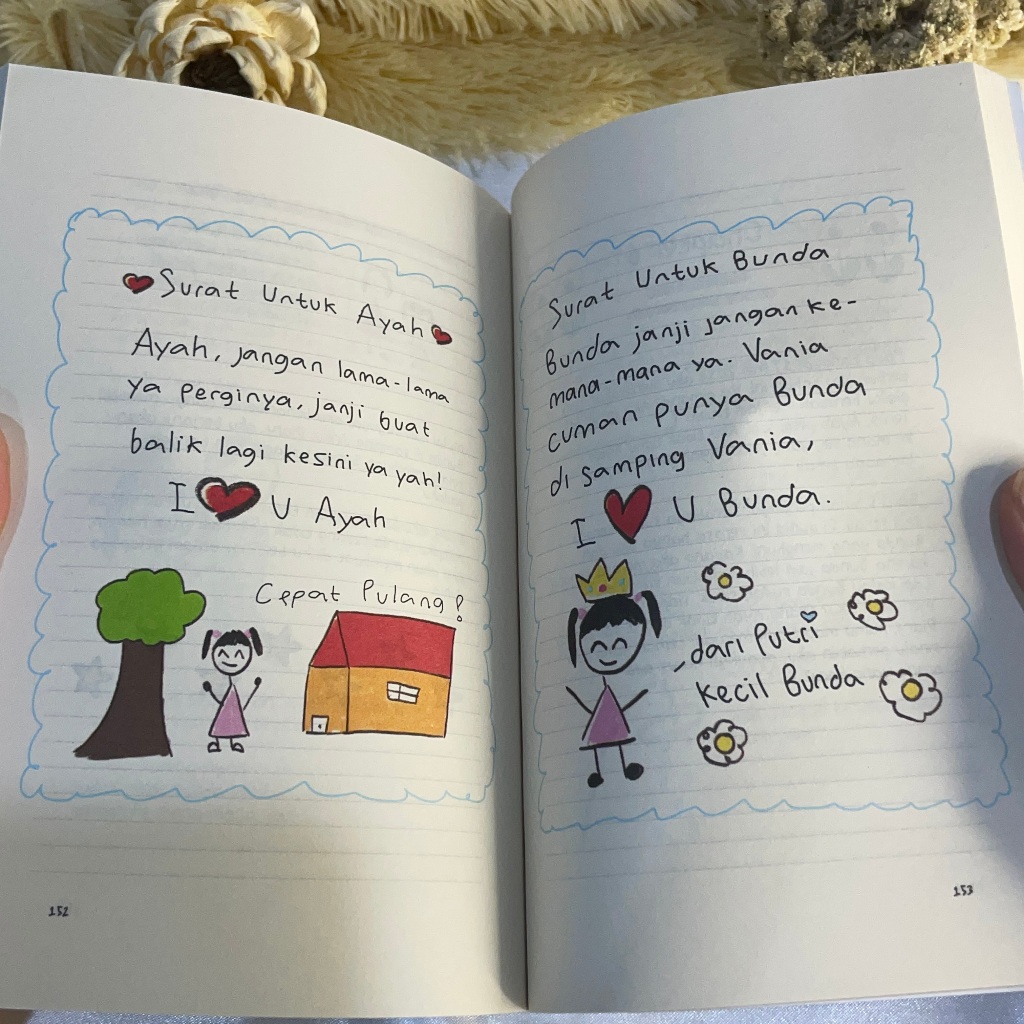 Surat Untuk Ayah
Ayah, jangan lama-lama
ya perginya, janji buat
balik lagi kesini ya yah!
I ❤ U Ayah
Cepat Pulang!
152
Surat Untuk Bunda
Bunda janji jangan ke-
mana-mana ya. Vania
cuman punya Bunda
di samping Vania,
I ❤ U Bunda.
, dari Putri
kecil Bunda
153